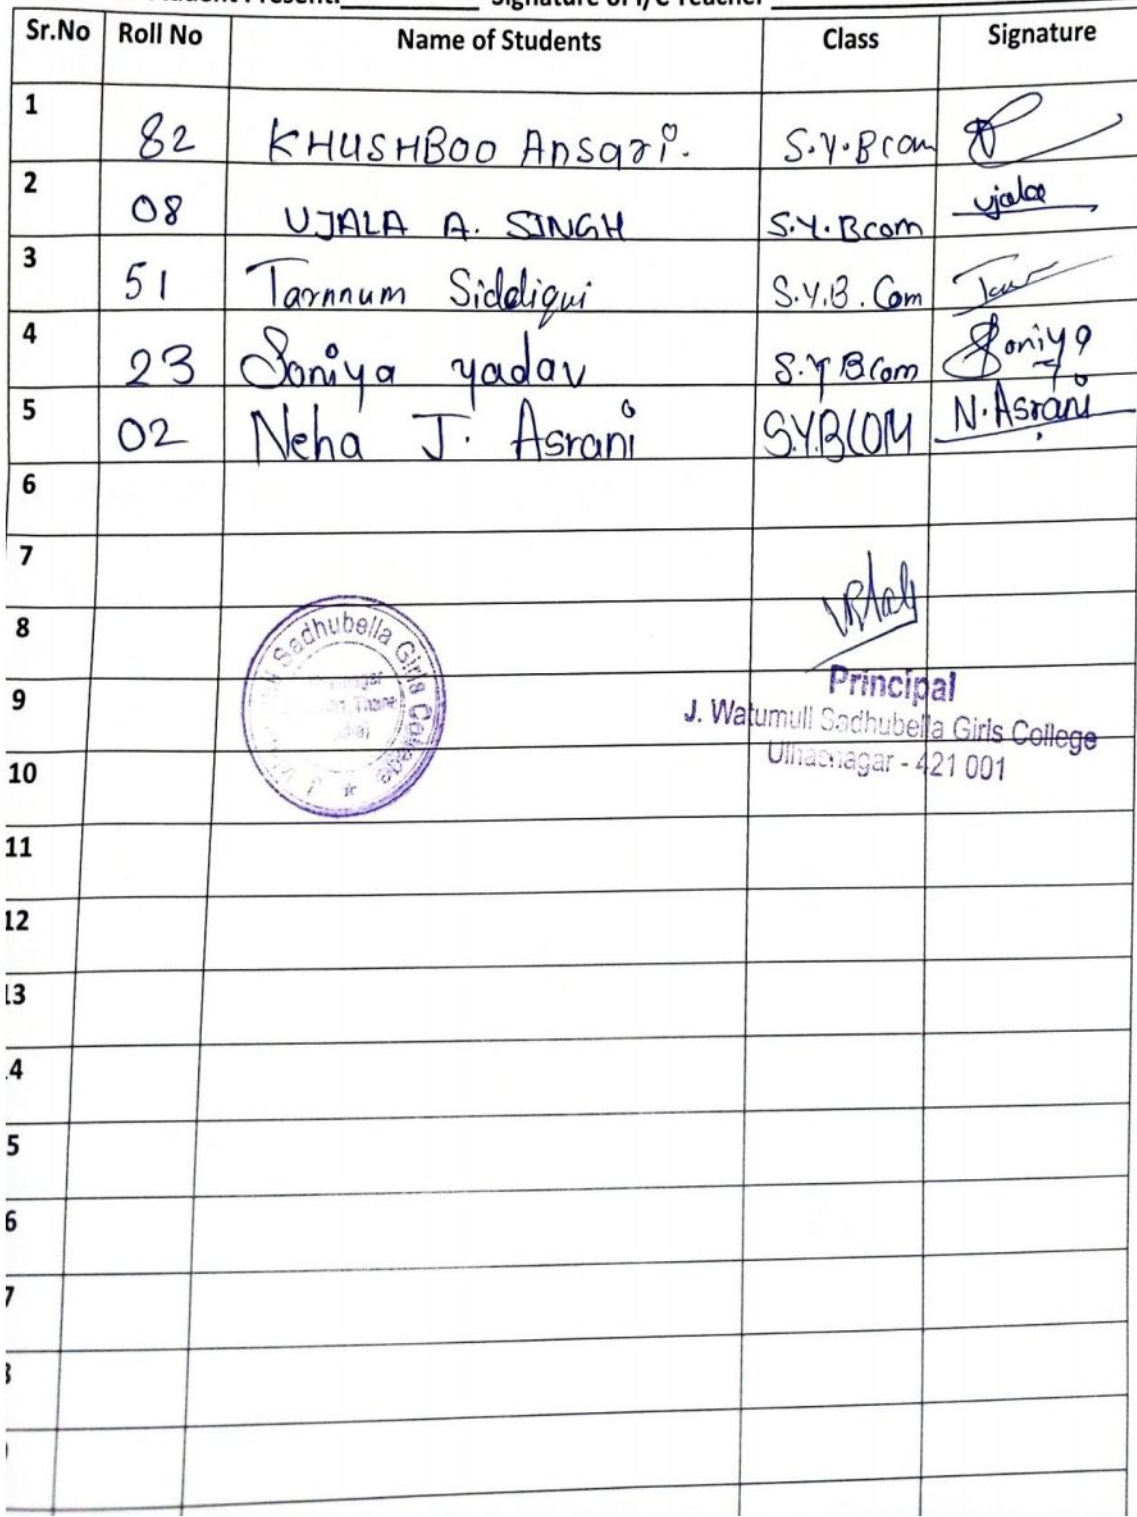 Student Present: Signature of I/C Teacher
Sr.No Roll No Name of Students Class Signature
1 82 KHUSHBOO Ansari. S.Y.Bcom
2 08 UJALA A. SINGH S.Y.Bcom ujala
3 51 Tarnnum Siddiqui S.Y.B.Com
4 23 Soniya yadav S.Y Bcom Soniya
5 02 Neha J. Asrani S.Y.BCOM N.Asrani
6
7
8
Sadhubella Girls College
9
Principal
J. Watumull Sadhubella Girls College
Ulhasnagar - 421 001
10
11
12
13
4
5
6
7